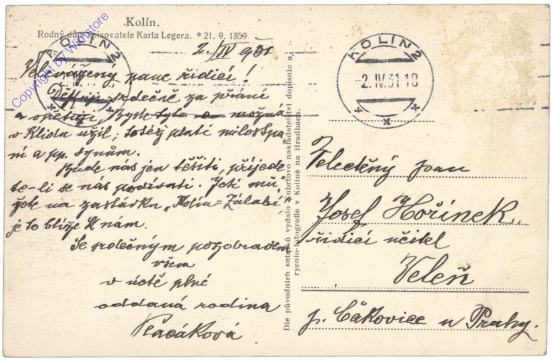 Kolín.
Rodný dům spisovatele Karla Legera. * 21. 9. 1859.
Copyright by Wikistore
KOLÍN 2
KOLÍN 2
2.IV.31-18
2./IV 931
Velevážený pane řídící!
Děkuji srdečně za přání
možná
v klidu užil; totéž platí milostpa-
ní a pp. synům.
Bude nás jen těšiti, přijede-
te-li se nás podívati.
na zastávku, "Kolín-Zálabí",
je to blíže k nám.
Se srdečným pozdravem
všem
v úctě plné
oddaná rodina
Ptáčáková
Die původních snímků vydalo Kuhrtovo nakladatelství dopisnic a
rytecno-fotografie v Kolíně na Hradbách.
Velectěný pan
Josef Hořínek
řídící učitel
Veleň
p. Čakovice u Prahy.